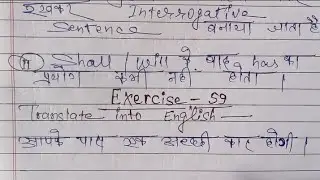 रखकर Interrogative
Sentence बनाया जाता है
(4) Shall / will के बाद has का
प्रयोग कभी नहीं होता ।
Exercise - 59
Translate into English —
आपके पास एक अच्छी कार होगी ।